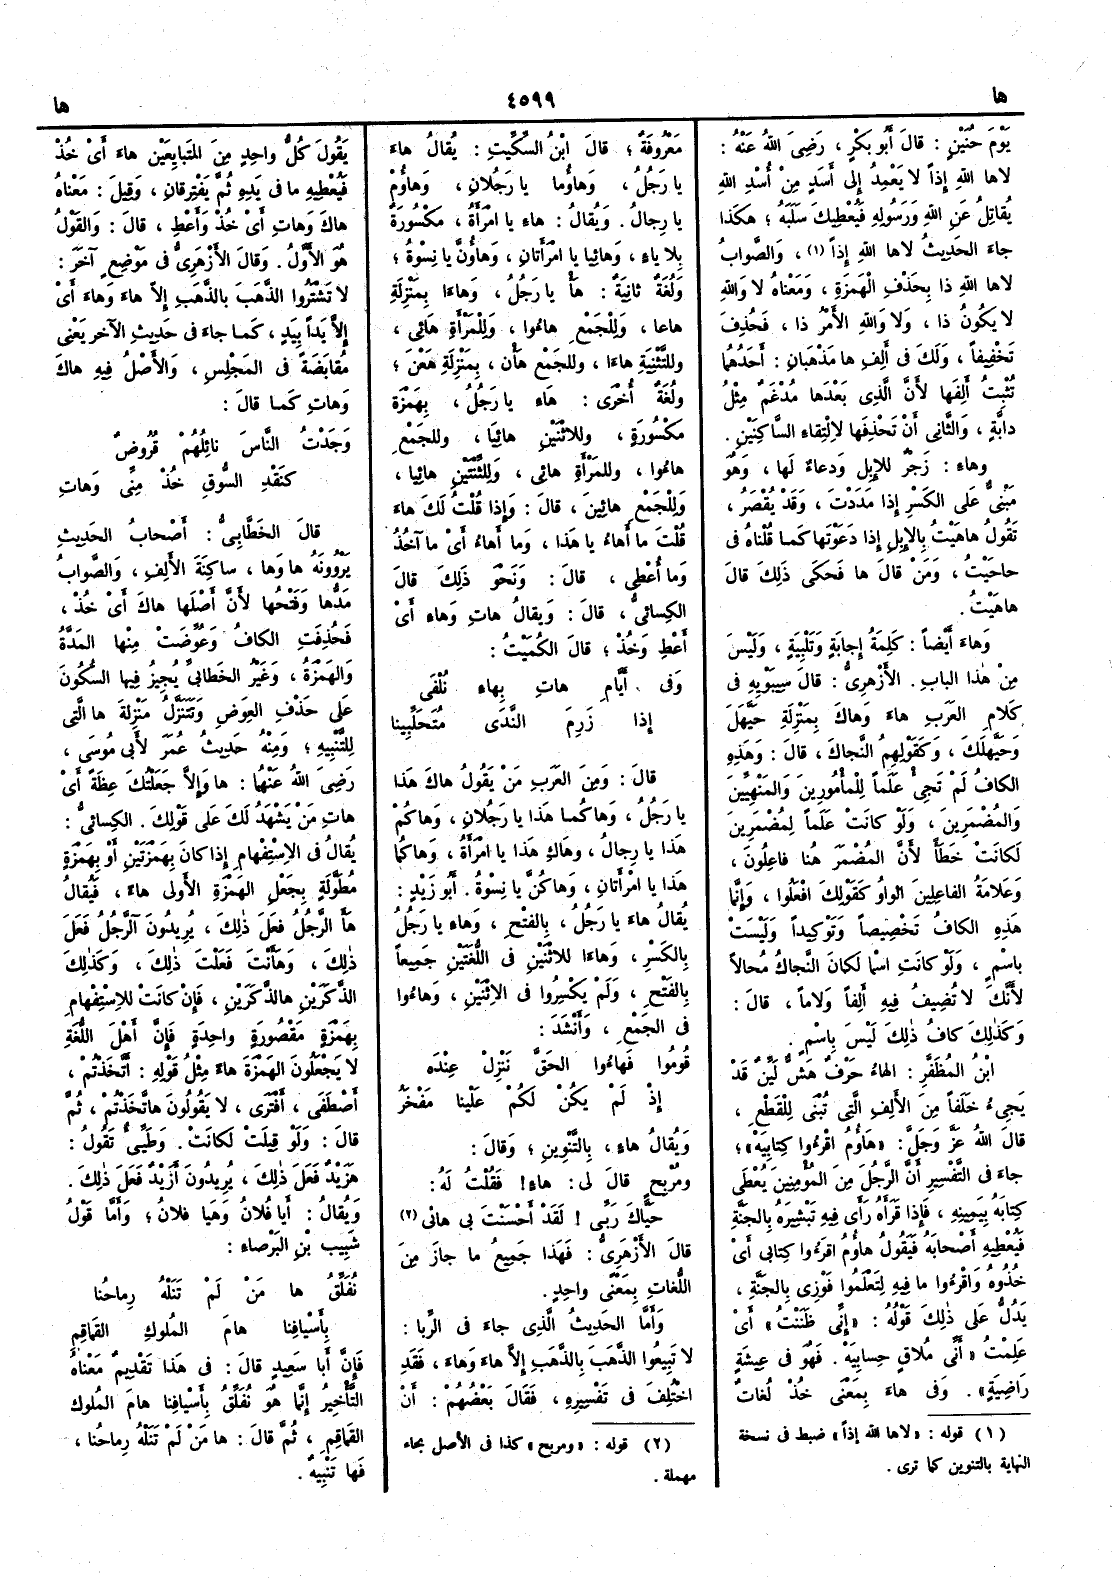 ها
٤٥٩٩
ها
يَوْمَ حُنَيْنٍ : قالَ أَبُو بَكْرٍ ، رَضِىَ اللهُ عَنْهُ :
لاها اللهِ إِذاً لا يَعْمِدُ إِلى أَسَدٍ مِنْ أُسْدِ اللهِ
يُقاتِلُ عَنِ اللهِ وَرَسُولِهِ فَيُعْطِيكَ سَلَبَهُ ؛ هٰكَذا
جاءَ الحَدِيثُ لاها اللهِ إِذاً (١) ، وَالصَّوابُ
لاها اللهِ ذا بِحَذْفِ الْهَمْزَةِ ، وَمَعْناهُ لا وَاللهِ
لا يَكُونُ ذا ، وَلا وَاللهِ الأَمْرُ ذا ، فَحُذِفَ
تَخْفِيفاً ، وَلَكَ فى أَلِفِ ها مَذْهَبانِ : أَحَدُهُما
تُثْبِتُ أَلِفَها لأَنَّ الَّذِى بَعْدَها مُدْغَمٌ مِثْلُ
دابَّةٍ ، وَالثَّانِى أَنْ تَحْذِفَها لاِلْتِقاءِ السَّاكِنَيْنِ .
وهاءِ : زَجْرٌ لِلإِبِلِ وَدعاءٌ لَها ، وَهُوَ
مَبْنِىٌّ عَلَى الكَسْرِ إِذا مَدَدْتَ ، وَقَدْ يُقْصَرُ ،
تَقُولُ هاهَيْتُ بِالإِبِلِ إِذا دَعَوْتَها كَما قُلْناهُ فى
حاحَيْتُ ، وَمَنْ قالَ ها فَحَكَى ذٰلِكَ قالَ
هاهَيْتُ .
وَهاءَ أَيْضاً : كَلِمَةُ إِجابَةٍ وَتَلْبِيَةٍ ، وَلَيْسَ
مِنْ هٰذا البابِ . الأَزْهَرِىُّ : قالَ سِيبَوَيْهِ فى
كَلامِ العَرَبِ هاءَ وَهاكَ بِمَنْزِلَةِ حَيَّهَلَ
وَحَيَّهَلَكَ ، وَكَقَوْلِهِمُ النَّجاكَ ، قالَ : وَهٰذِهِ
الكافُ لَمْ تَجِئْ عَلَماً لِلْمَأْمُورِينَ وَالمَنْهِيِّينَ
وَالمُضْمَرِينَ ، وَلَوْ كانَتْ عَلَماً لِمُضْمَرِينَ
لَكانَتْ خَطَأً لأَنَّ المُضْمَرَ هُنا فاعِلُونَ ،
وَعَلامَةُ الفاعِلِينَ الواوُ كَقَوْلِكَ افْعَلُوا ، وَإِنَّما
هَذِهِ الكافُ تَخْصِيصاً وَتَوْكِيداً وَلَيْسَتْ
بِاسْمٍ ، وَلَوْ كانَتِ اسْماً لَكانَ النَّجاكُ مُحالاً
لأَنَّكَ لا تُضِيفُ فِيهِ أَلِفاً وَلاماً ، قالَ :
وَكَذٰلِكَ كافُ ذٰلِكَ لَيْسَ بِاسْمٍ .
ابْنُ المُظَفَّرِ : الهاءُ حَرْفٌ هَشٌّ لَيِّنٌ قَدْ
يَجِىءُ خَلَفاً مِنَ الأَلِفِ الَّتِى تُبْنَى لِلْقَطْعِ ،
قالَ اللهُ عَزَّ وَجَلَّ : «هاؤُمُ اقْرَءُوا كِتابِيَهْ» ؛
جاءَ فى التَّفْسِيرِ أَنَّ الرَّجُلَ مِنَ المُؤْمِنِينَ يُعْطَى
كِتابَهُ بِيَمِينِهِ ، فَإِذا قَرَأَهُ رَأَى فِيهِ تَبْشِيرَهُ بِالجَنَّةِ
فَيُعْطِيهِ أَصْحابَهُ فَيَقُولُ هاؤُمُ اقرَءُوا كِتابِى أَىْ
خُذُوهُ وَاقْرَءُوا ما فِيهِ لِتَعْلَمُوا فَوْزِى بِالجَنَّةِ ،
يَدُلُّ عَلَى ذٰلِكَ قَوْلُهُ : «إِنِّى ظَنَنْتُ» أَىْ
عَلِمْتُ «أَنِّى مُلاقٍ حِسابِيَهْ . فَهُوَ فى عِيشَةٍ
رَاضِيَةٍ» . وَفى هاءَ بِمَعْنَى خُذْ لُغاتٌ
(١) قوله : «لاها الله إذاً» ضبط فى نسخة
النهاية بالتنوين كما ترى .
مَعْرُوفَةٌ ؛ قالَ ابْنُ السِّكِّيتِ : يُقالُ هاءَ
يا رَجُلُ ، وَهاؤُما يا رَجُلانِ ، وَهاؤُمْ
يا رِجالُ . وَيُقالُ : هاءِ يا امْرَأَةُ ، مَكْسُورَةً
بِلا ياءٍ ، وَهائِيا يا امْرَأَتانِ ، وَهاؤُنَّ يا نِسْوةُ ؛
وَلُغَةٌ ثانِيَةٌ : هَأْ يا رَجُلُ ، وَهاءَا بِمَنْزِلَةِ
هاعا ، وَلِلْجَمْعِ هاءُوا ، وَلِلْمَرْأَةِ هائِى ،
وَلِلتَّثْنِيَةِ هاءَا ، وَلِلجَمْعِ هأْنَ ، بِمَنْزِلَةِ هَعْنَ ؛
وَلُغَةٌ أُخْرَى : هَاءِ يا رَجُلُ ، بِهَمْزَةٍ
مَكْسُورَةٍ ، وَلِلاثْنَيْنِ هائِيَا ، وَلِلجَمْعِ
هاءُوا ، وَلِلمَرْأَةِ هائِى ، وَلِلثِّنْتَيْنِ هائِيا ،
وَلِلْجَمْعِ هائِينَ ، قالَ : وَإِذا قُلْتُ لَكَ هاءَ
قُلْتَ ما أَهاءُ يا هَذا ، وَما أُهاءُ أَىْ ما آخُذُ
وَما أُعْطِى ، قالَ : وَنَحْوَ ذَلِكَ قالَ
الكِسائِىُّ ، قالَ : وَيقالُ هاتِ وَهاءِ أَىْ
أَعْطِ وَخُذْ ؛ قالَ الكُمَيْتُ :
وَفى أَيَّامِ هاتِ بِهاءِ نُلْفَى
إِذا زَرِمَ النَّدَى مُتَحَلِّبِينا
قالَ : وَمِنَ العَرَبِ مَنْ يَقُولُ هاكَ هَذا
يا رَجُلُ ، وَهاكُما هَذا يا رَجُلانِ ، وَهاكُمْ
هَذا يا رِجالُ ، وَهاكِ هَذا يا امْرَأَةُ ، وَهاكُما
هَذا يا امْرَأَتانِ ، وَهاكُنَّ يا نِسْوَةُ . أَبُو زَيْدٍ :
يُقالُ هاءَ يا رَجُلُ ، بِالفَتْحِ ، وَهاءِ يا رَجُلُ
بِالكَسْرِ ، وَهاءَا لِلاثْنَيْنِ فى اللُّغَتَيْنِ جَمِيعاً
بِالفَتْحِ ، وَلَمْ يَكْسِرُوا فى الاِثْنَيْنِ ، وَهاءُوا
فى الجَمْعِ ، وَأَنْشَدَ :
قُومُوا فَهاءُوا الحَقَّ نَنْزِلْ عِنْدَهُ
إِذْ لَمْ يَكُنْ لَكُمْ عَلَيْنا مَفْخَرُ
وَيُقالُ هاءٍ ، بِالتَّنْوِينِ ؛ وَقالَ :
ومُرْبِحٍ قالَ لِى : هاءٍ ! فَقُلْتُ لَهُ :
حَيَّاكَ رَبِّى ! لَقَدْ أَحْسَنْتَ بِى هائِى (٢)
قالَ الأَزْهَرِىُّ : فَهَذا جَمِيعُ ما جازَ مِنَ
اللُّغاتِ بِمَعْنًى واحِدٍ .
وَأَمَّا الحَدِيثُ الَّذِى جاءَ فى الرِّبا :
لا تَبِيعُوا الذَّهَبَ بِالذَّهَبِ إِلاَّ هاءَ وَهاءَ ، فَقَدِ
اخْتُلِفَ فى تَفْسِيرِهِ ، فَقَالَ بَعْضُهُمْ : أَنْ
(٢) قوله : «ومربح» كذا فى الأصل بحاء
مهملة .
يَقُولَ كُلُّ واحِدٍ مِنَ المُتَبايِعَيْنِ هاءَ أَىْ خُذْ
فَيُعْطِيهِ ما فى يَدِهِ ثُمَّ يَفْتَرِقانِ ، وَقِيلَ : مَعْناهُ
هاكَ وَهاتِ أَىْ خُذْ وَأَعْطِ ، قالَ : وَالقَوْلُ
هُوَ الأَوَّلُ . وَقالَ الأَزْهَرِىُّ فى مَوْضِعٍ آخَرَ :
لا تَشْتَرُوا الذَّهَبَ بِالذَّهَبِ إِلاَّ هاءَ وَهاءَ أَىْ
إِلاَّ يَداً بِيَدٍ ، كَما جاءَ فى حَدِيثِ الآخَرِ يَعْنِى
مُقابَضَةً فى المَجْلِسِ ، وَالأَصْلُ فِيهِ هاكَ
وَهاتِ كَما قالَ :
وَجَدْتُ النَّاسَ نائِلُهُمْ قُرُوضٌ
كَنَقْدِ السُّوقِ خُذْ مِنِّى وَهاتِ
قالَ الخَطَّابِىُّ : أَصْحابُ الحَدِيثِ
يَرْوُونَهُ ها وَها ، ساكِنَةَ الأَلِفِ ، وَالصَّوابُ
مَدُّها وَفَتْحُها لأَنَّ أَصْلَها هاكَ أَىْ خُذْ ،
فَحُذِفَتِ الكافُ وَعُوِّضَتْ مِنْها المَدَّةُ
وَالهَمْزَةُ ، وَغَيْرُ الخَطابِىِّ يُجِيزُ فِيها السُّكُونَ
عَلَى حَذْفِ العِوَضِ وَتَتَنَزَّلُ مَنْزِلَةَ ها الَّتِى
لِلتَّنْبِيهِ ؛ وَمِنْهُ حَدِيثُ عُمَرَ لأَبِى مُوسَى ،
رَضِىَ اللهُ عَنْهُما : ها وَإِلاَّ جَعَلْتُكَ عِظَةً أَىْ
هاتِ مَنْ يَشْهَدُ لَكَ عَلَى قَوْلِكَ . الكِسائِىُّ :
يُقالُ فى الاِسْتِفْهامِ إِذا كانَ بِهَمْزَتَيْنِ أَوْ بِهَمْزَةٍ
مُطَوَّلَةٍ بِجَعْلِ الهَمْزَةِ الأُولَى هاءً ، فَيُقالُ
هَأَ الرَّجُلُ فَعَلَ ذٰلِكَ ، يُرِيدُونَ آلرَّجُلُ فَعَلَ
ذٰلِكَ ، وَهَأَنْتَ فَعَلْتَ ذٰلِكَ ، وَكَذٰلِكَ
الذَّكَرَيْنِ هالذَّكَرَيْنِ ، فَإِنْ كانَتْ لِلاِسْتِفْهامِ
بِهَمْزَةٍ مَقْصُورَةٍ واحِدَةٍ فَإِنَّ أَهْلَ اللُّغَةِ
لا يَجْعَلُونَ الهَمْزَةَ هاءً مِثْلُ قَوْلِهِ : أَتَّخَذْتُمْ ،
أَصْطَفَى ، أَفْتَرَى ، لا يَقُولُونَ هاتَّخَذْتُمْ ، ثُمَّ
قالَ : وَلَوْ قِيلَتْ لَكانَتْ . وَطَيِّئٌ تَقُولُ :
هَزَيْدٌ فَعَلَ ذٰلِكَ ، يُرِيدُونَ أَزَيْدٌ فَعَلَ ذٰلِكَ .
وَيُقالُ : أَيا فُلانُ وَهَيا فُلانُ ؛ وَأَمَّا قَوْلُ
شَبِيبِ بْنِ البَرْصاءِ :
نُفَلِّقُ ها مَنْ لَمْ تَنَلْهُ رِماحُنا
بِأَسْيافِنا هامَ المُلوكِ القَماقِمِ
فَإِنَّ أَبا سَعِيدٍ قالَ : فى هَذا تَقْدِيمٌ مَعْناهُ
التَّأْخِيرُ إِنَّما هُوَ نُفَلِّقُ بِأَسْيافِنا هامَ المُلوكِ
القَماقِمِ ، ثُمَّ قالَ : ها مَنْ لَمْ تَنَلْهُ رِماحُنا ،
فَها تَنْبِيهٌ .